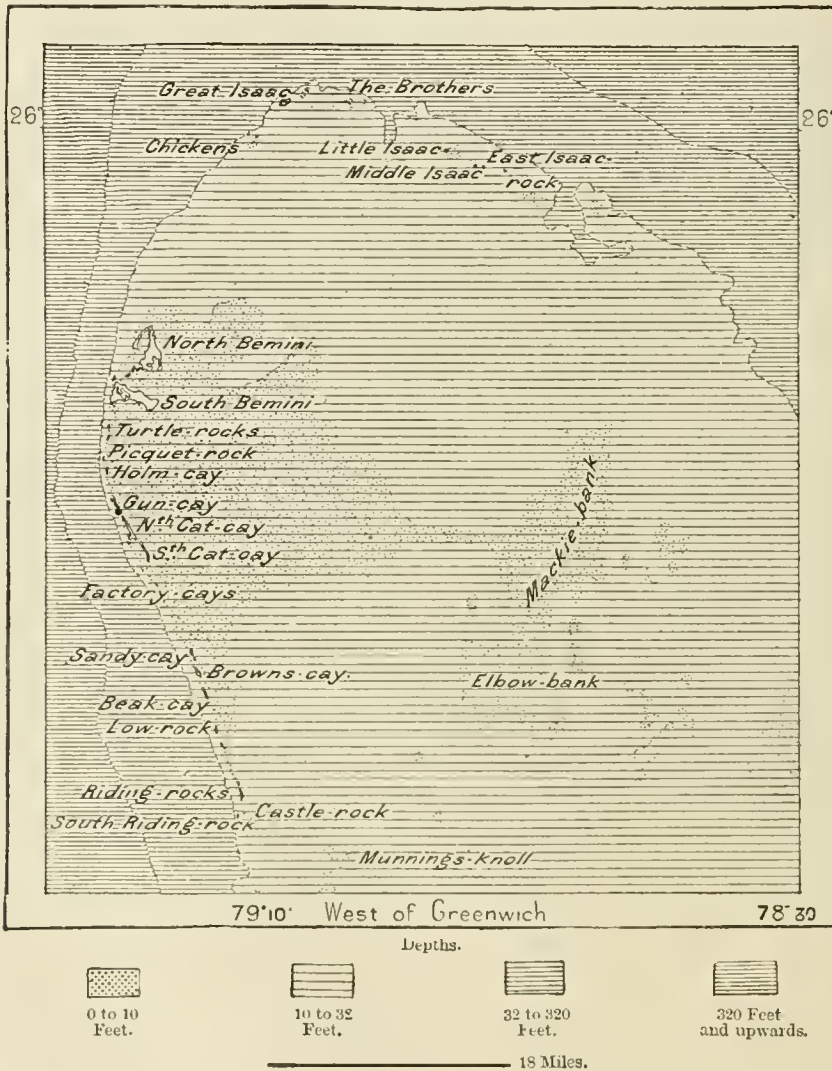 Great Isaac The Brothers
26° 26°
Chickens Little Isaac East Isaac
Middle Isaac rock
North Bemini
South Bemini
Turtle-rocks
Picquet-rock
Holm-cay
Gun-cay
Nth Cat-cay
Sth Cat-cay
Mackie-bank
Factory-cays
Sandy-cay
Browns-cay.
Elbow-bank
Beak-cay
Low-rock
Riding-rocks
Castle-rock
South-Riding-rock
Munnings-knoll
79°10' West of Greenwich 78°30
Depths.
0 to 10 Feet.
10 to 32 Feet.
32 to 320 Feet.
320 Feet and upwards.
18 Miles.